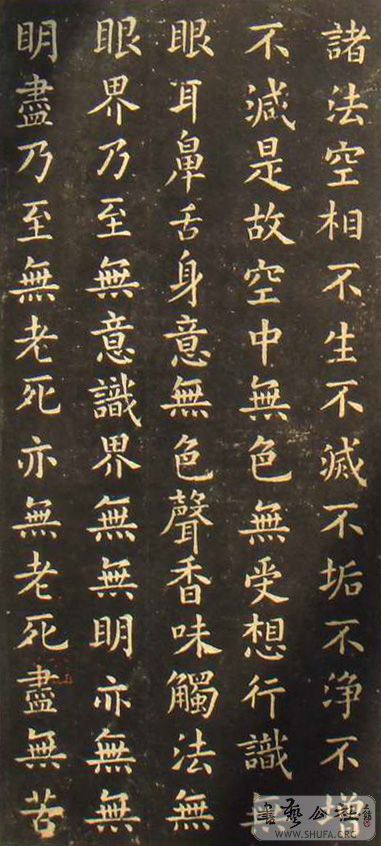 諸法空相不生不滅不垢不浄不增
不減是故空中無色無受想行識無
眼耳鼻舌身意無色聲香味觸法無
眼界乃至無意識界無無明亦無無
眀盡乃至無老死亦無老死盡無苦
書藝公社
WWW.SHUFA.ORG